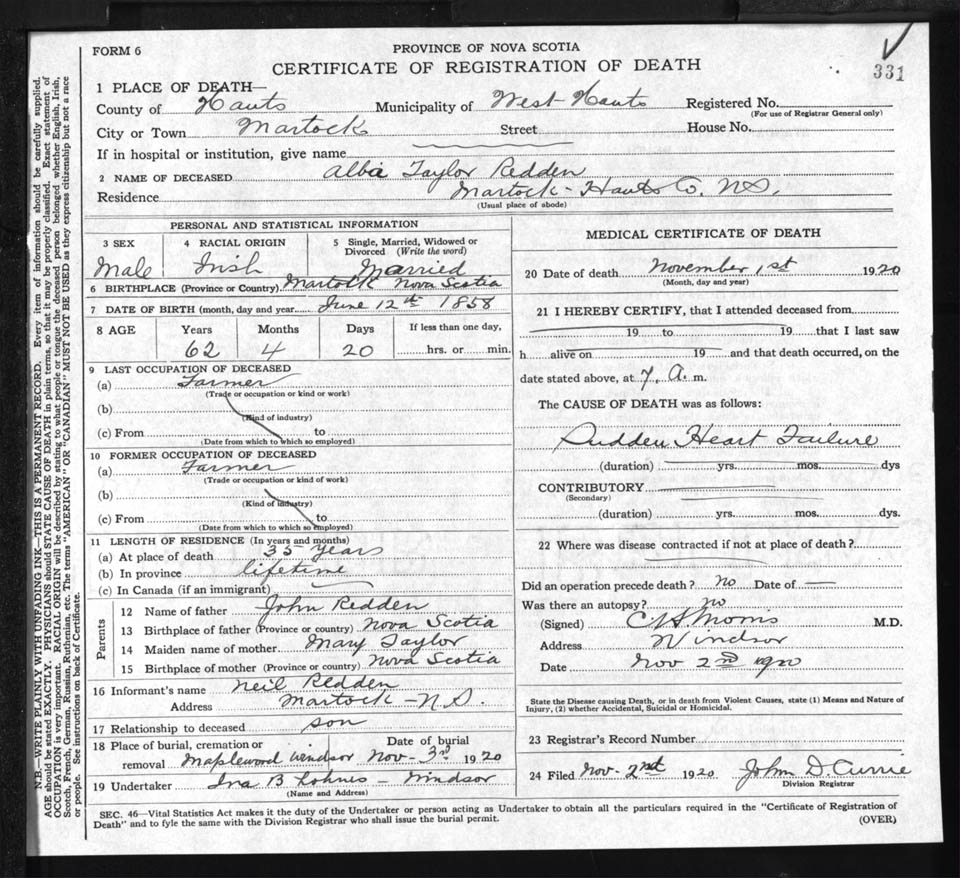 FORM 6
PROVINCE OF NOVA SCOTIA
CERTIFICATE OF REGISTRATION OF DEATH
331
1 PLACE OF DEATH—
County of Hants Municipality of West Hants Registered No.
(For use of Registrar General only)
City or Town Martock Street House No.
If in hospital or institution, give name
2 NAME OF DECEASED Albia Taylor Redden
Residence Martock - Hants Co. N.S.
(Usual place of abode)
PERSONAL AND STATISTICAL INFORMATION
3 SEX 4 RACIAL ORIGIN 5 Single, Married, Widowed or
Divorced (Write the word)
Male Irish Married
6 BIRTHPLACE (Province or Country) Martock Nova Scotia
7 DATE OF BIRTH (month, day and year) June 12th 1858
8 AGE Years Months Days If less than one day,
62 4 20 hrs. or min.
9 LAST OCCUPATION OF DECEASED
(a) Farmer
(Trade or occupation or kind or work)
(b)
(Kind of industry)
(c) From to
(Date from which to which so employed)
10 FORMER OCCUPATION OF DECEASED
(a) Farmer
(Trade or occupation or kind of work)
(b)
(Kind of industry)
(c) From to
(Date from which to which so employed)
11 LENGTH OF RESIDENCE (In years and months)
(a) At place of death 35 Years
(b) In province lifetime
(c) In Canada (if an immigrant)
Parents
12 Name of father John Redden
13 Birthplace of father (Province or country) Nova Scotia
14 Maiden name of mother Mary Taylor
15 Birthplace of mother (Province or country) Nova Scotia
16 Informant's name Neil Redden
Address Martock - N.S.
17 Relationship to deceased son
18 Place of burial, cremation or Date of burial
removal Maplewood Windsor Nov - 3rd 1920
19 Undertaker Ira B Lohnes - Windsor
(Name and Address)
MEDICAL CERTIFICATE OF DEATH
20 Date of death November 1st 1920
(Month, day and year)
21 I HEREBY CERTIFY, that I attended deceased from
19 to 19 that I last saw
h alive on 19 and that death occurred, on the
date stated above, at 7 A. m.
The CAUSE OF DEATH was as follows:
Sudden Heart Failure
(duration) yrs. mos. dys
CONTRIBUTORY
(Secondary)
(duration) yrs. mos. dys.
22 Where was disease contracted if not at place of death?
Did an operation precede death? no Date of —
Was there an autopsy? no
(Signed) C H Morris M.D.
Address Windsor
Date Nov 2nd 1920
State the Disease causing Death, or in death from Violent Causes, state (1) Means and Nature of
Injury, (2) whether Accidental, Suicidal or Homicidal.
23 Registrar's Record Number
24 Filed Nov - 2nd 1920 John D. Currie
Division Registrar
SEC. 46—Vital Statistics Act makes it the duty of the Undertaker or person acting as Undertaker to obtain all the particulars required in the "Certificate of Registration of
Death" and to fyle the same with the Division Registrar who shall issue the burial permit. (OVER)
N.B.—WRITE PLAINLY WITH UNFADING INK—THIS IS A PERMANENT RECORD. Every item of information should be carefully supplied.
AGE should be stated EXACTLY. PHYSICIANS should STATE CAUSE OF DEATH in plain terms, so that it may be properly classified. Exact statement of
OCCUPATION is very important. RACIAL ORIGIN will be described by stating to what people or tongue the deceased person belonged whether English, Irish,
Scotch, French, German, Russian, Ruthenian, etc. The terms "AMERICAN" OR "CANADIAN" MUST NOT BE USED as they express citizenship but not a race
or people. See instructions on back of Certificate.